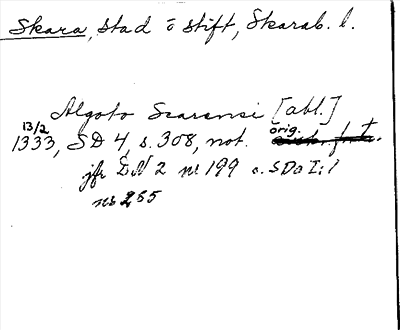 Skara, stad o stift, Skarab. l.
Algoto Scarensi [abl.]
13/2 1333, SD 4, s. 308, not. orig. †
jfr DN 2 nr 199 o. SDa I:1
nr 255